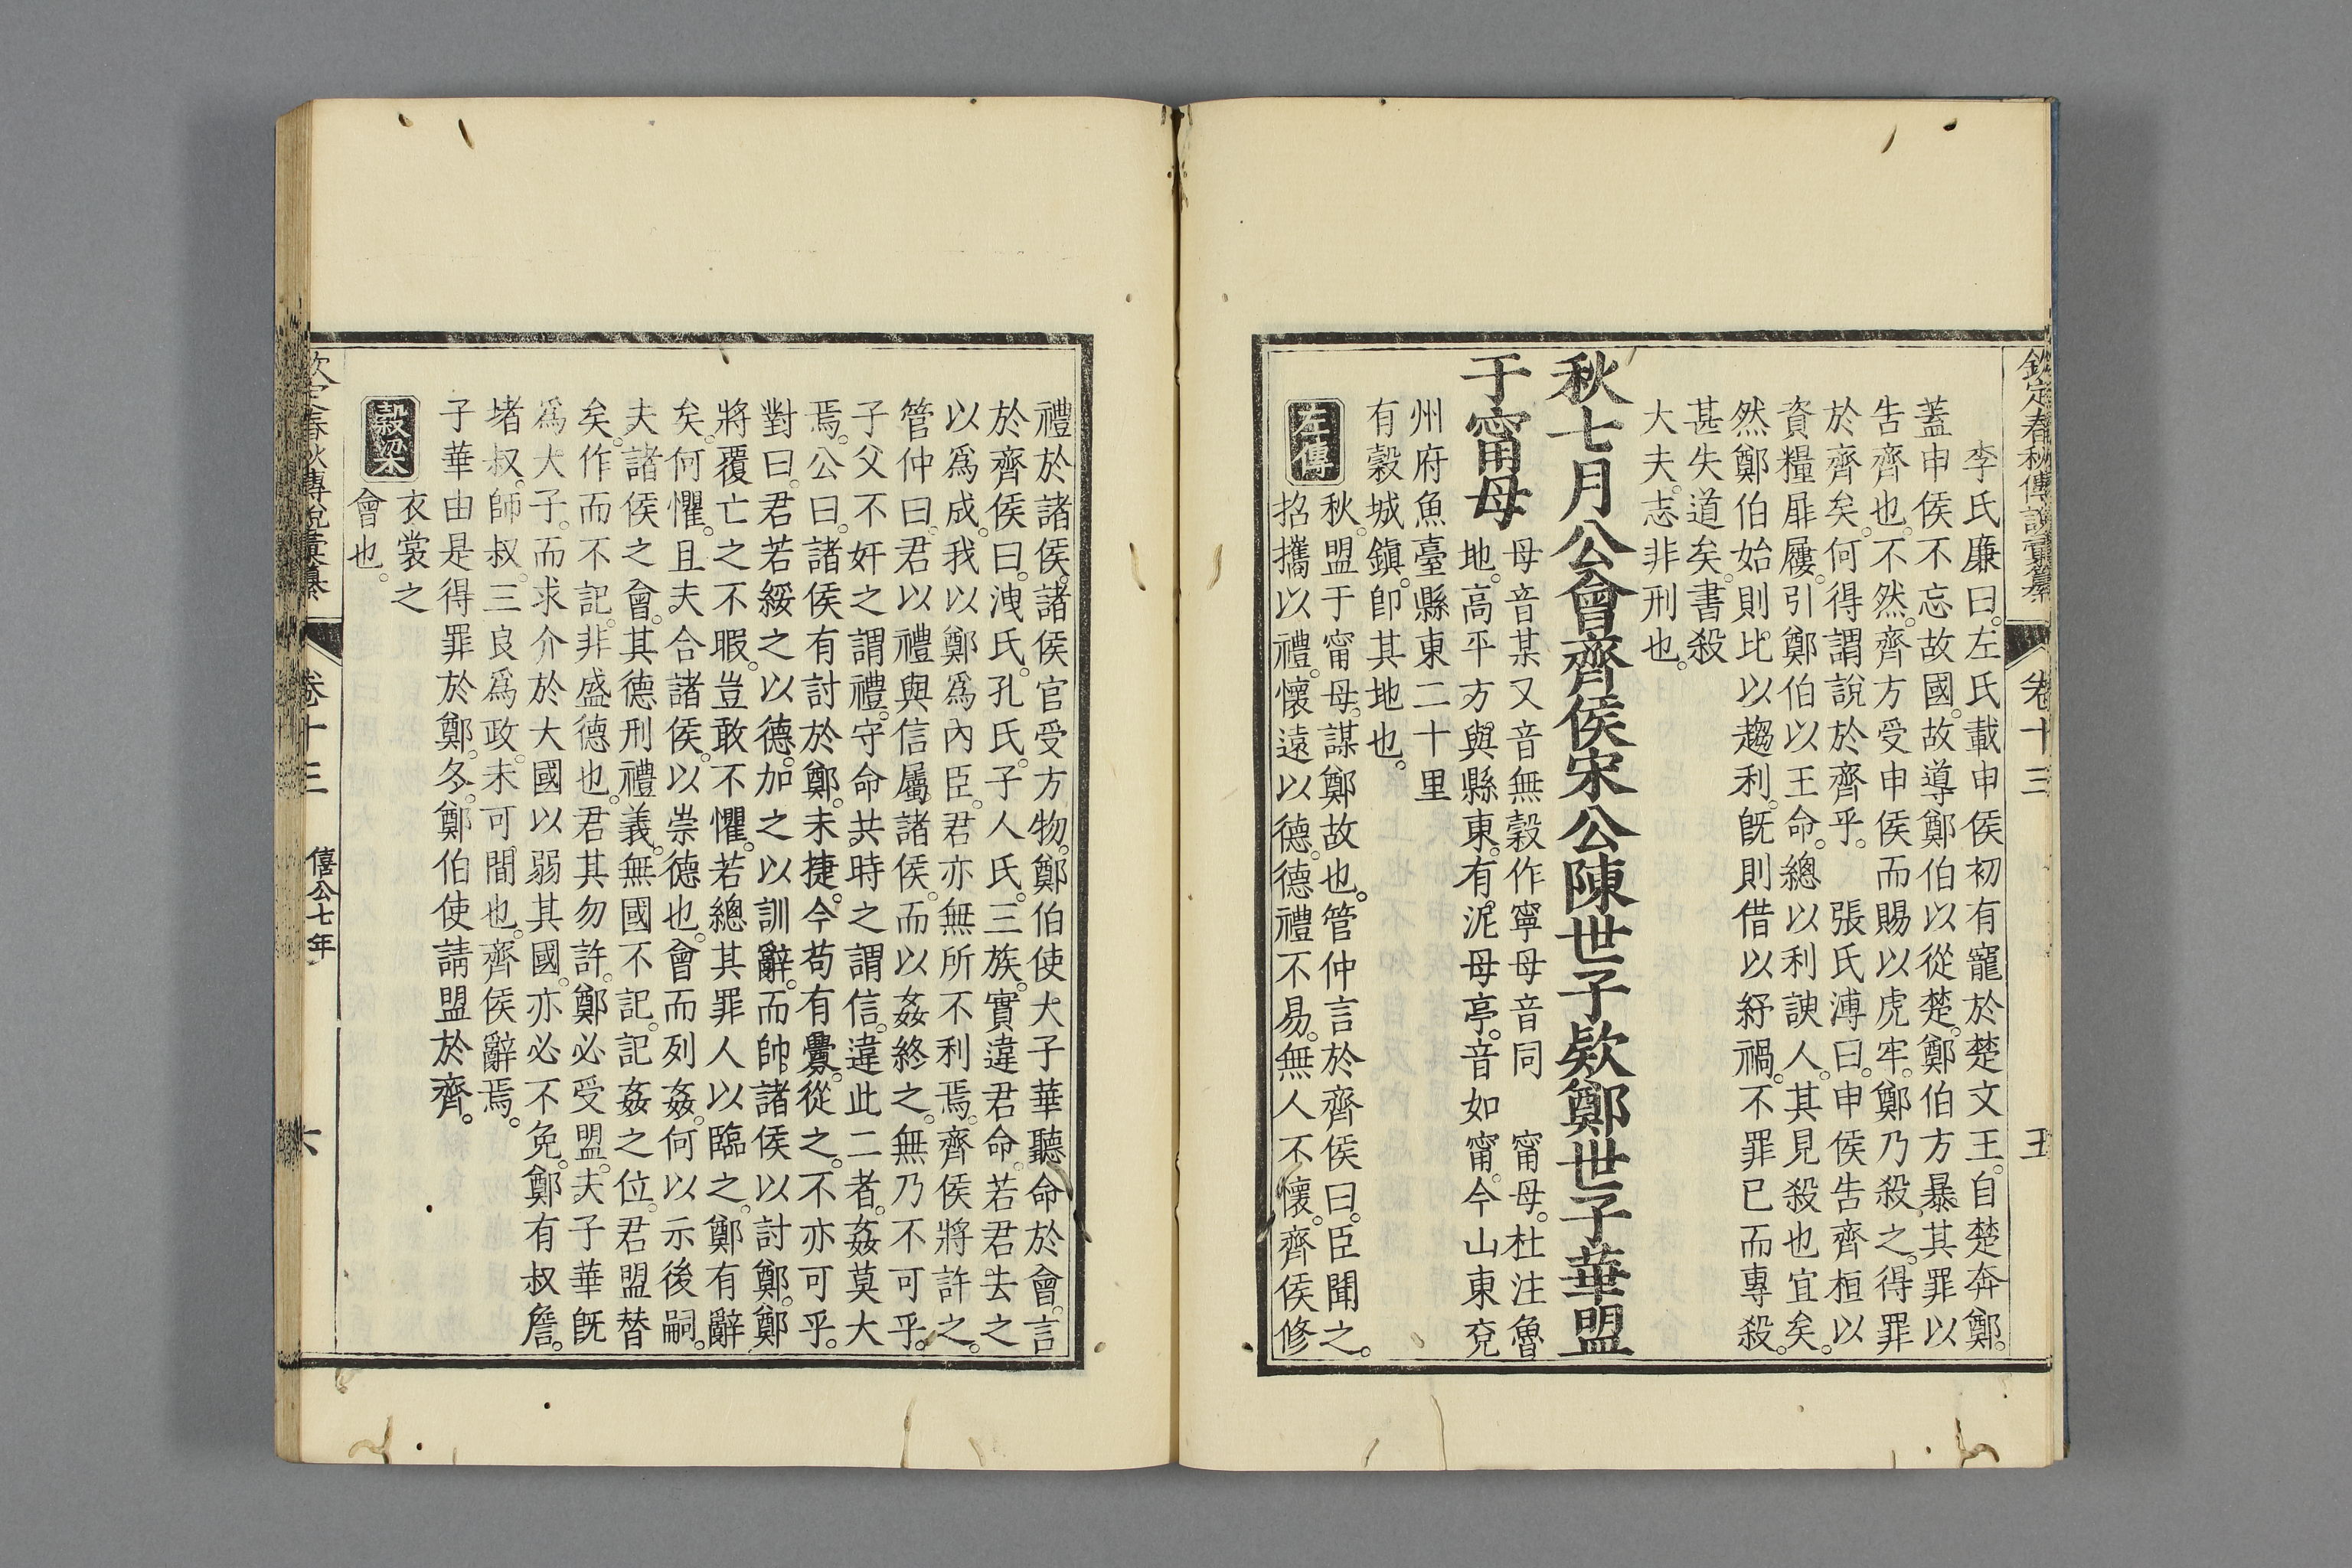 欽定春秋傳說彙纂 卷十三 五
李氏廉曰。左氏載申侯初有寵於楚文王。自楚奔鄭。
蓋申侯不忘故國。故導鄭伯以從楚。鄭伯方暴其罪以
告齊也。不然。齊方受申侯而賜以虎牢。鄭乃殺之。得罪
於齊矣。何得謂說於齊乎。 張氏溥曰。申侯告齊桓以
資糧屝屨。引鄭伯以王命。總以利諛人。其見殺也宜矣。
然鄭伯始則比以趨利。旣則借以紓禍。不罪已而專殺。
甚失道矣。書殺
大夫。志非刑也。
秋七月公會齊侯宋公陳世子欵鄭世子華盟
于甯母
母音某又音無穀作寧母音同 甯母。杜注魯
地。高平方與縣東。有泥母亭。音如甯。今山東兗
州府魚臺縣東二十里
有穀城鎮。卽其地也。
左傳
秋。盟于甯母。謀鄭故也。管仲言於齊侯曰。臣聞之。
招攜以禮。懷遠以德。德禮不易。無人不懷。齊侯修
禮於諸侯。諸侯官受方物。鄭伯使大子華聽命於會。言
於齊侯曰。洩氏。孔氏。子人氏。三族。實違君命。若君去之
以爲成。我以鄭爲內臣。君亦無所不利焉。齊侯將許之。
管仲曰。君以禮與信屬諸侯。而以姦終之。無乃不可乎。
子父不奸之謂禮。守命共時之謂信。違此二者。姦莫大
焉。公曰。諸侯有討於鄭。未捷。今苟有釁。從之。不亦可乎。
對曰。君若綏之以德。加之以訓辭。而帥諸侯以討鄭。鄭
將覆亡之不暇。豈敢不懼。若總其罪人以臨之。鄭有辭
矣。何懼。且夫合諸侯。以崇德也。會而列姦。何以示後嗣。
夫諸侯之會。其德刑禮義。無國不記。記姦之位。君盟替
矣。作而不記。非盛德也。君其勿許。鄭必受盟。夫子華旣
爲大子。而求介於大國以弱其國。亦必不免。鄭有叔詹。
堵叔。師叔。三良爲政。未可間也。齊侯辭焉。
子華由是得罪於鄭。冬。鄭伯使請盟於齊。
穀梁
衣裳之
會也。
欽定春秋傳說彙纂 卷十三 僖公七年 六